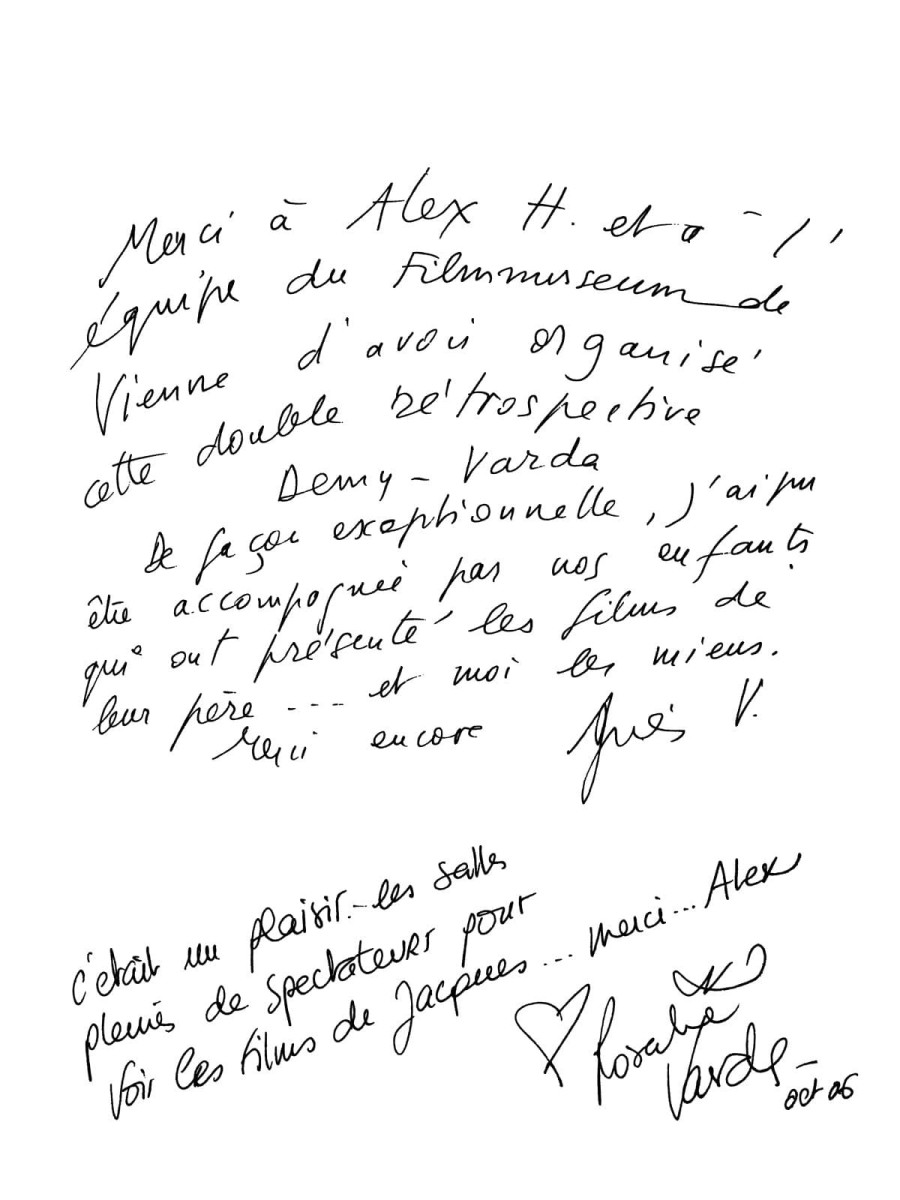 Merci à Alex H. et à l'
équipe du Filmmuseum de
Vienne d'avoir organisé
cette double rétrospective
Demy - Varda
De façon exceptionnelle, j'ai pu
être accompagnée par nos enfants
qui ont présenté les films de
leur père --- et moi les miens.
Merci encore Agnès V.
c'était un plaisir - les salles
pleines de spectateurs pour
voir les films de Jacques... merci... Alex
Rosalie
Varda -
oct 06